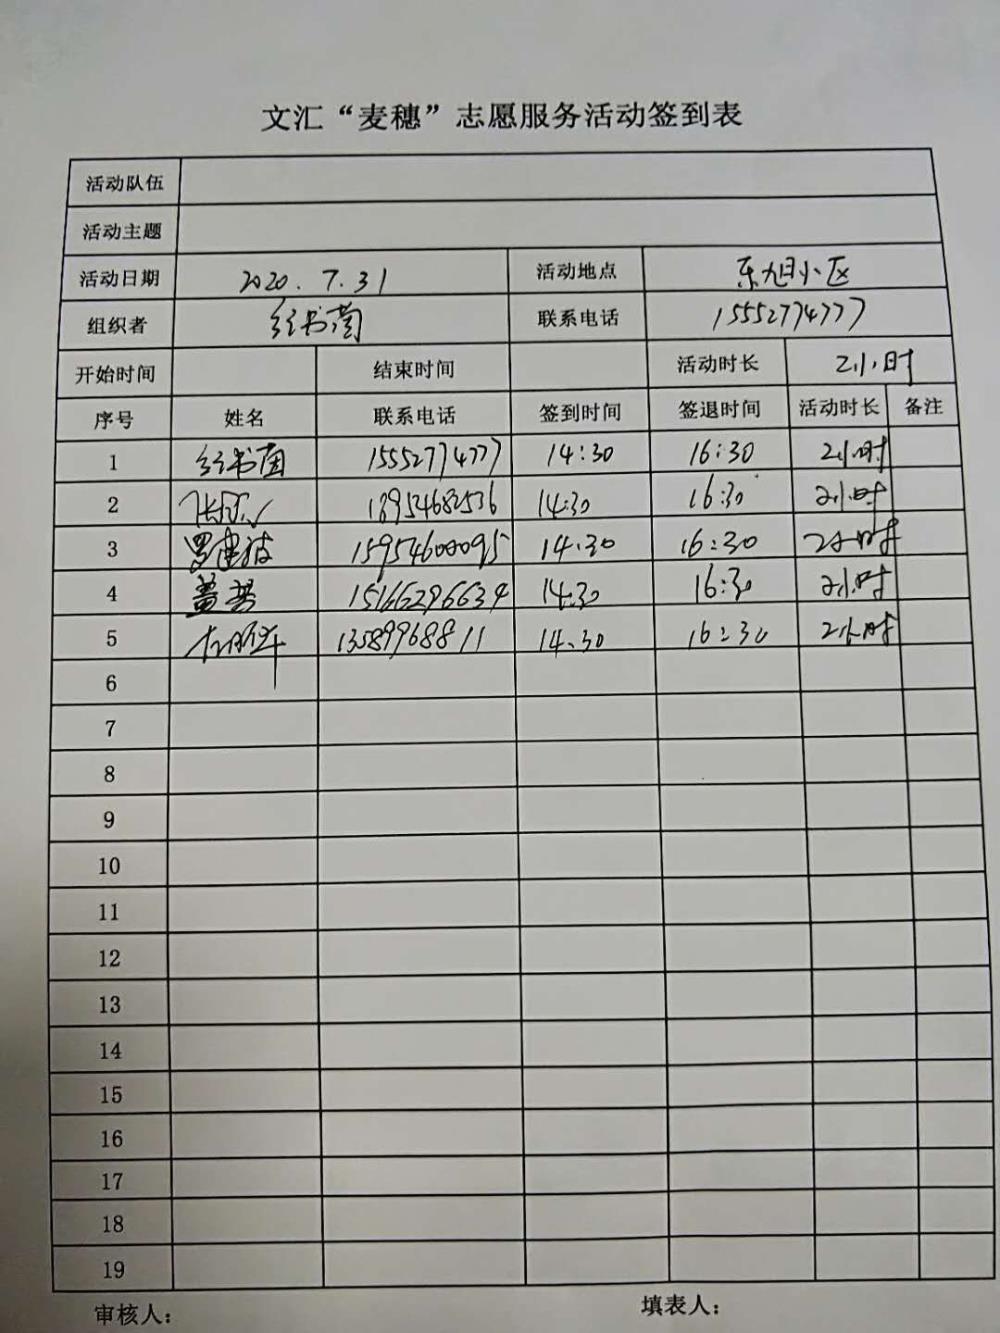 文汇“麦穗”志愿服务活动签到表
活动队伍
活动主题
活动日期 2020.7.31 活动地点 东旭小区
组织者 书 联系电话 15552774777
开始时间 结束时间 活动时长 2小时
序号 姓名 联系电话 签到时间 签退时间 活动时长 备注
1 书 15552774777 14:30 16:30 2小时
2 张 13954682536 14:30 16:30 2小时
3 罗建波 15954600095 14:30 16:30 2小时
4 盖 15166296639 14:30 16:30 2小时
5 13589968811 14:30 16:30 2小时
6
7
8
9
10
11
12
13
14
15
16
17
18
19
审核人： 填表人：